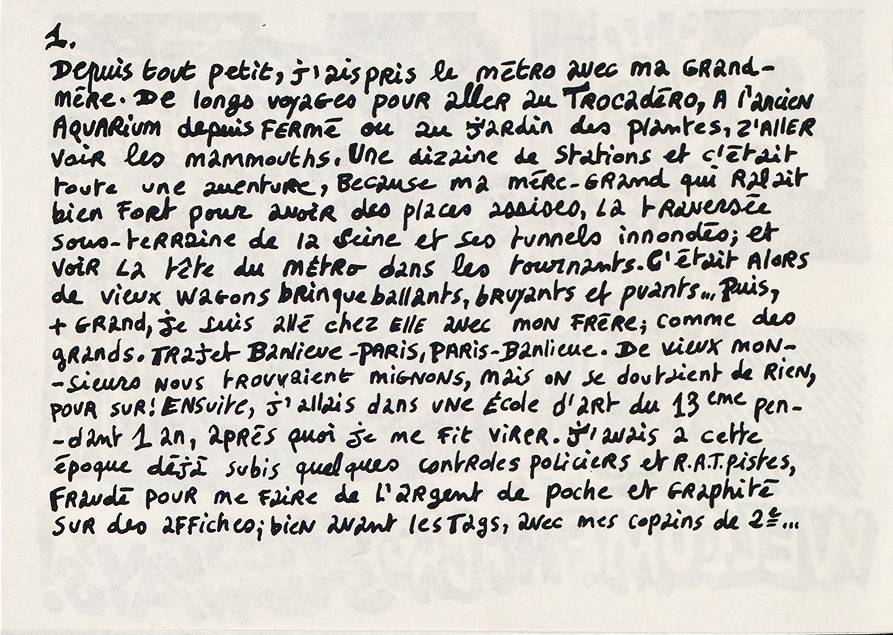 1.
Depuis tout petit, j'ais pris le métro avec ma GRand-
mère. De longs voyages pour aller au TROCADÉRO, A l'ancien
AQUARium depuis FERMÉ ou au jardin des plantes, z'AllER
voir les mammouths. Une dizaine de Stations et c'était
toute une aventure, Because ma mère-GRand qui Ralait
bien Fort pour avoir des places assises, La traversée
sous-terraine de la Seine et ses tunnels innondés; et
voir La tête du métro dans les tournants. C'était Alors
de vieux wagons brinqueballants, bruyants et puants... Puis,
+ GRand, je suis allé chez Elle avec mon FRÈRE; comme des
grands. Trajet Banlieue-PARis, PARis-Banlieue. De vieux mon-
-sieurs nous trouvaient mignons, mais on se doutaient de Rien,
pour sur! Ensuite, j'allais dans une École d'art du 13eme pen-
-dant 1 an, après quoi je me fit virer. J'avais a cette
époque déjà subis quelques controles policiers et R.A.T.pistes,
Fraudé pour me Faire de l'argent de poche et Graphité
sur des affiches; bien avant les Tags, avec mes copains de 2e...